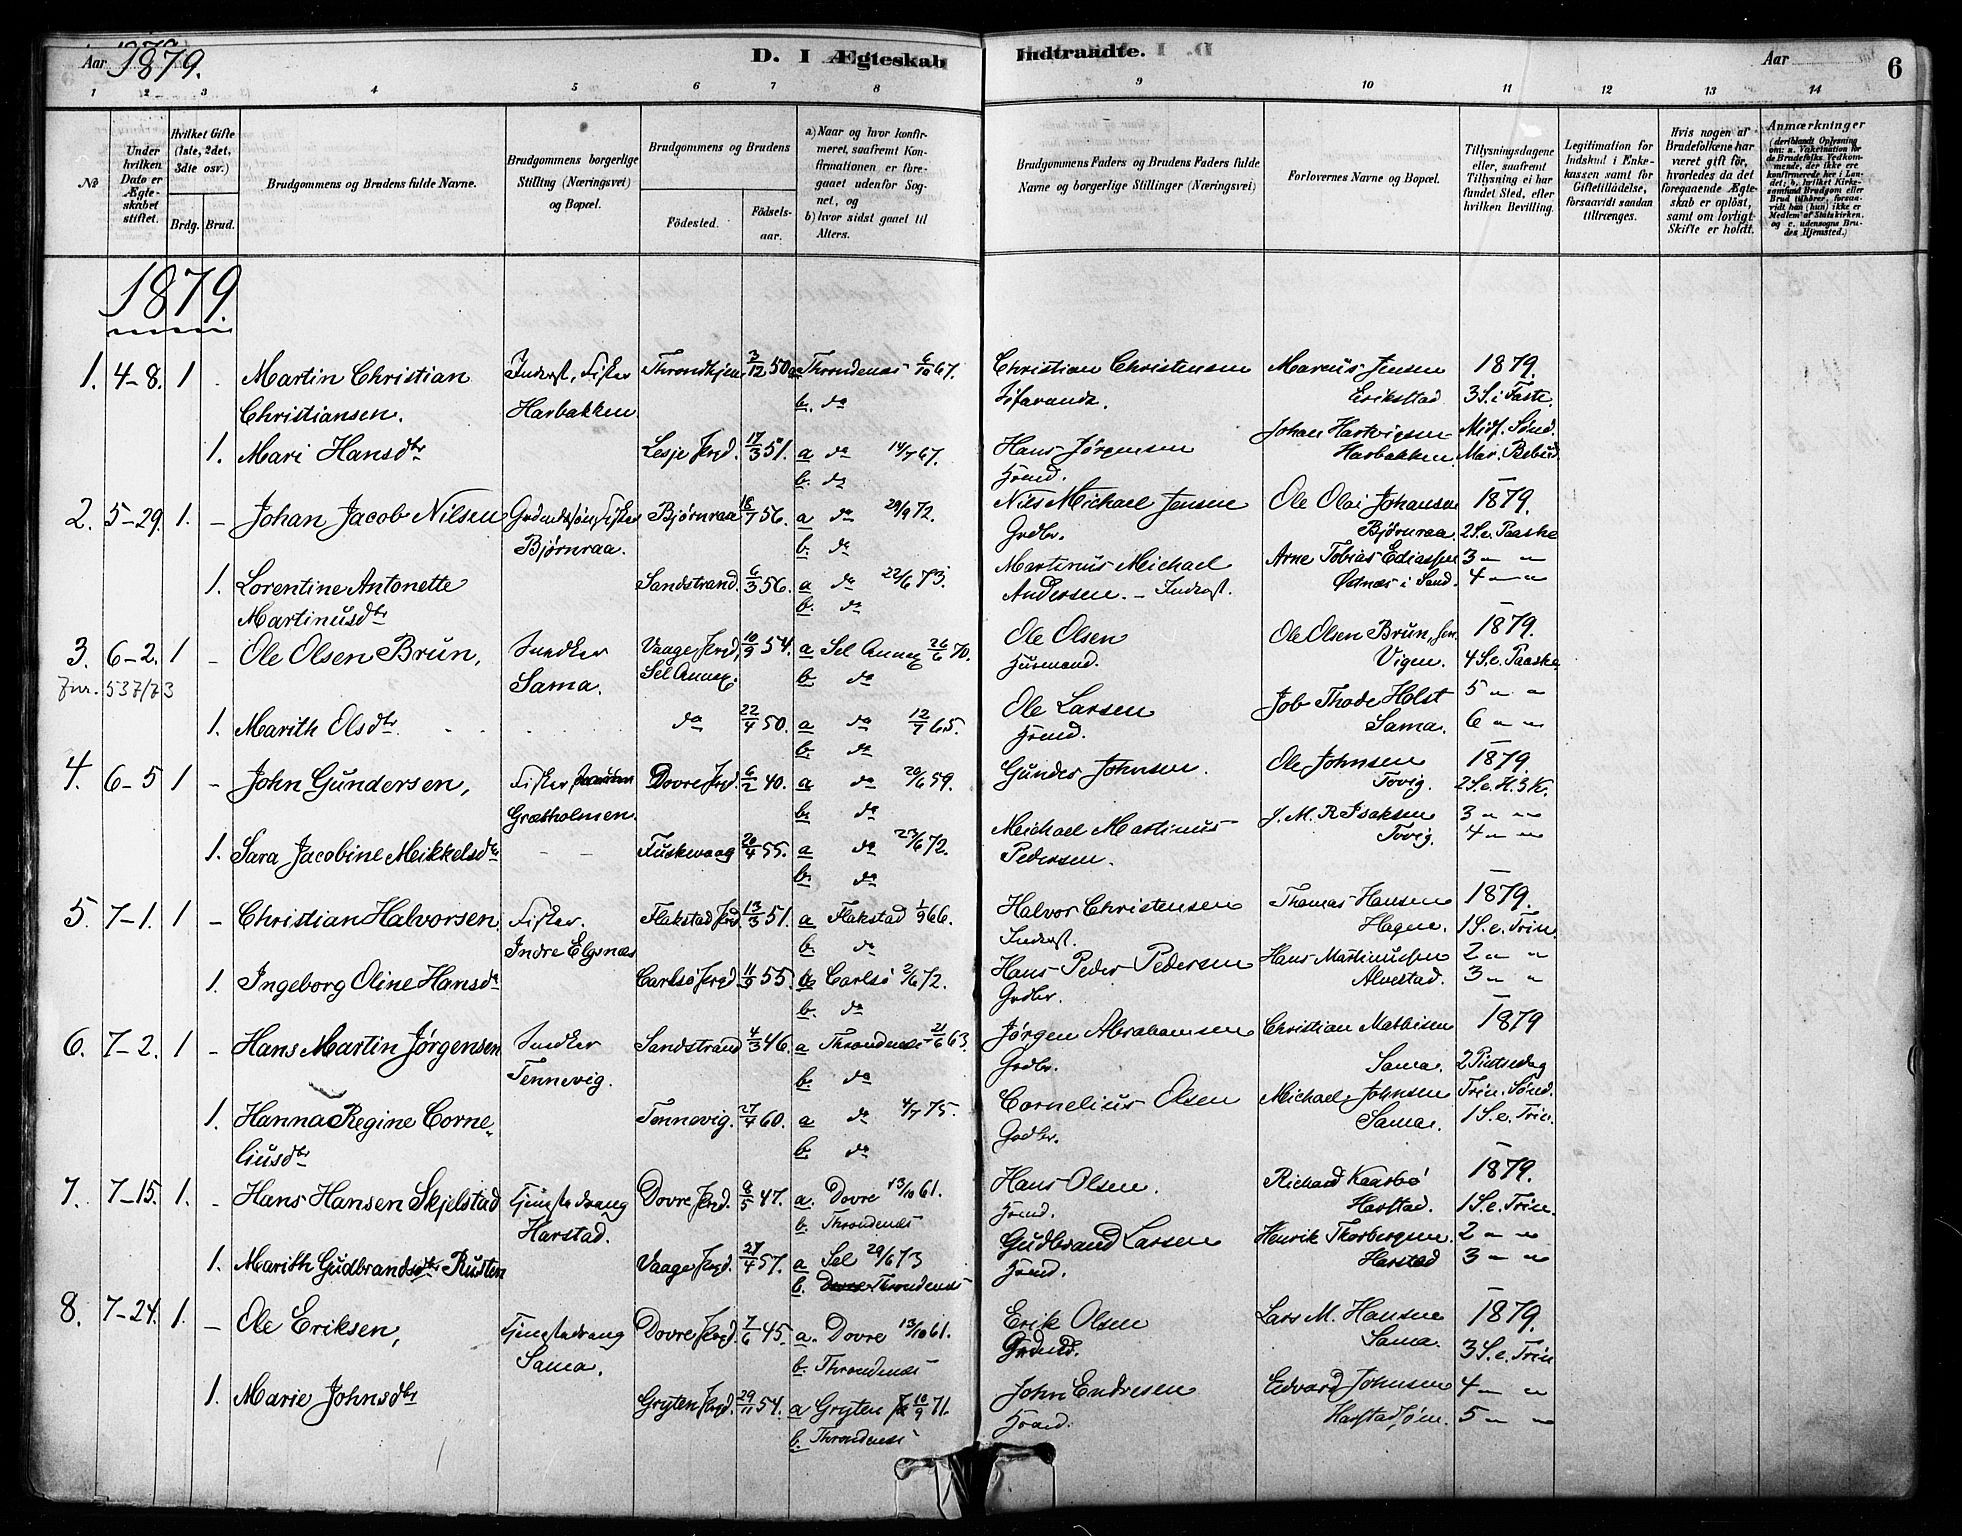 Aar 1879.
D. I Ægteskab Indtraadte.
Aar
6
1 2 3 4 5 6 7 8 9 10 11 12 13 14
No
Under hvilken Dato er Ægteskabet stiftet.
Hvilket Gifte (1ste, 2det, 3dte osv.)
Brdg. Brud.
Brudgommens og Brudens fulde Navne.
Brudgommens borgerlige Stilling (Næringsvei) og Bopæl.
Brudgommens og Brudens
Födested. Födselsaar.
a) Naar og hvor konfirmeret, saafremt Konfirmationen er foregaaet udenfor Sognet, og
b) hvor sidst gaaet til Alters.
Brudgommens Faders og Brudens Faders fulde Navne og borgerlige Stillinger (Næringsvei)
Forlovernes Navne og Bopæl.
Tillysningsdagene eller, saafremt Tillysning ei har fundet Sted, efter hvilken Bevilling.
Legitimation for Indskud i Enkekassen samt for Giftetilladelse, forsaavidt saadan tiltrænges.
Hvis nogen af Brudefolkene har været gift för, hvorledes da det foregaaende Ægteskab er oplöst, samt om lovligt Skifte er holdt.
Anmærkninger
(deriblandt Oplysning om: a. Vakcination for de Brudefolks Vedkommende, der ikke ere konfirmerede her i Landet; b. hvilket Kirkesamfund Brudgom eller Brud tilhörer, forsaavidt han (hun) ikke er Medlem af Statskirken. og c. udensogns Brudes Hjemsted.)
1879.
1. 4-8. 1 . Martin Christian Inderst, Fisker Throndhjem 3/12 50 a Throndenes 6/10 67. Christian Christensen Marcus Jensen 1879.
Christiansen. Harbakken b. do Söfarende. Erikstad 3 S. i Faste.
Johan Hartvigsen Midf. Sönd.
1. Mari Hansdtr Lesje Prgd. 17/3 51. a do 14/7 67. Hans Jørgensen Harbakken. Mar. Bebud.
b. do Hsmd.
2. 5-29. 1. - Johan Jacob Nilsen Grdmdssøn, Fisker Bjørnraa 18/7 56. a do 29/9 72. Nils Michael Jensen Ole Olai Johansen 1879.
Bjørnraa. b. do Grdbr. Bjørnraa. 2 S. e. Paaske
1. Lorentine Antonette Sandstrand. 6/3 56. a do 22/6 73. Martinus Michael Arne Tobias Ediassen 3 " "
Martinusdtr b. do Andersen. - Inderst. Østnæs i Sand. 4 " "
3. 6-2. 1 - Ole Olsen Brun, Snedker Vaage Prgd, 10/9 54. a Sel Annex 26/6 70. Ole Olsen Ole Olsen Brun, sen. 1879.
Jnr. 537/73 Sama. Sel Annex. b. do Husmand. Vigen. 4 S. e. Paaske
1. Marith Olsdtr. do 22/4 50. a do 12/7 65. Ole Larsen Job Thode Holst 5 " "
b. do Hsmd. Sama. 6 " "
4. 6-5 1 - John Gundersen, Fisker Dovre Prgd. 6/2 40. a do 20/6 59. Gunder Johnsen. Ole Johnsen 1879.
Græsholmen. b. do Tovig. 2 S. e. H. 3 K.
1. Sara Jacobine Mikkelsdtr - - Fuskevaag 20/4 55. a do 23/6 72. Michael Martinus J. M. R. Isaksen 3 " "
b. do Pedersen. Tovig. 4 " "
5. 7-1. 1 - Christian Halvorsen Fisker. Flakstad Prgd 13/3 51. a Flakstad 1/9 66. Halvor Christensen Thomas Hansen 1879.
Indre Elgsnæs b. do Inderst. Hagen. 1 S. e. Trin.
1. Ingeborg Oline Hansdtr Carlsö Prgd 11/9 55. a Carlsö 2/6 72. Hans Peder Pedersen Hans Martinussen 2 " "
b. do Grdbr. Alvestad. 3 " "
6. 7-2. 1 - Hans Martin Jørgensen Snedker Sandstrand 4/3 46. a Throndenes 21/6 63. Jørgen Abrahamsen Christian Mathisen 1879
Tennevig. b. do Grdbr. Sama. 2 Pintsedag
1. Hanna Regine Corne- Tennevig. 27/4 60. a do 4/7 75. Cornelius Olsen Michael Johnsen Trin. Sönd.
liusdtr b. do Grdbr. Sama. 1 S. e. Trin.
7. 7-15. 1. - Hans Hansen Skjelstad Tjenestedreng Dovre Prgd. 8/5 47. a. Dovre 13/10 61. Hans Olsen. Richard Kaarbö 1879.
Harstad. b. Throndenes Hsmd. Harstad. 1 S. e. Trin.
1. Marith Gudbrandsdtr Rusten Vaage Prgd. 27/4 57. a Sel 29/6 73 Gudbrand Larsen Henrik Thorbergsen 2 " "
b. Throndenes Hsmd. Harstad 3 " "
8. 7-24. 1. - Ole Eriksen, Tjenestedreng Dovre Prgd. 7/6 45. a. Dovre 13/10 61. Erik Olsen Lars M. Hansen 1879.
Sama. b. Throndenes Grdmd. Sama. 3 S. e. Trin
1. Marie Johnsdtr Gryten Prgd. 29/11 54. a Gryten 10/9 71. John Endresen Edvard Johnsen 4 " "
b. Throndenes Hsmd. Harstadsjøen. 5 " "